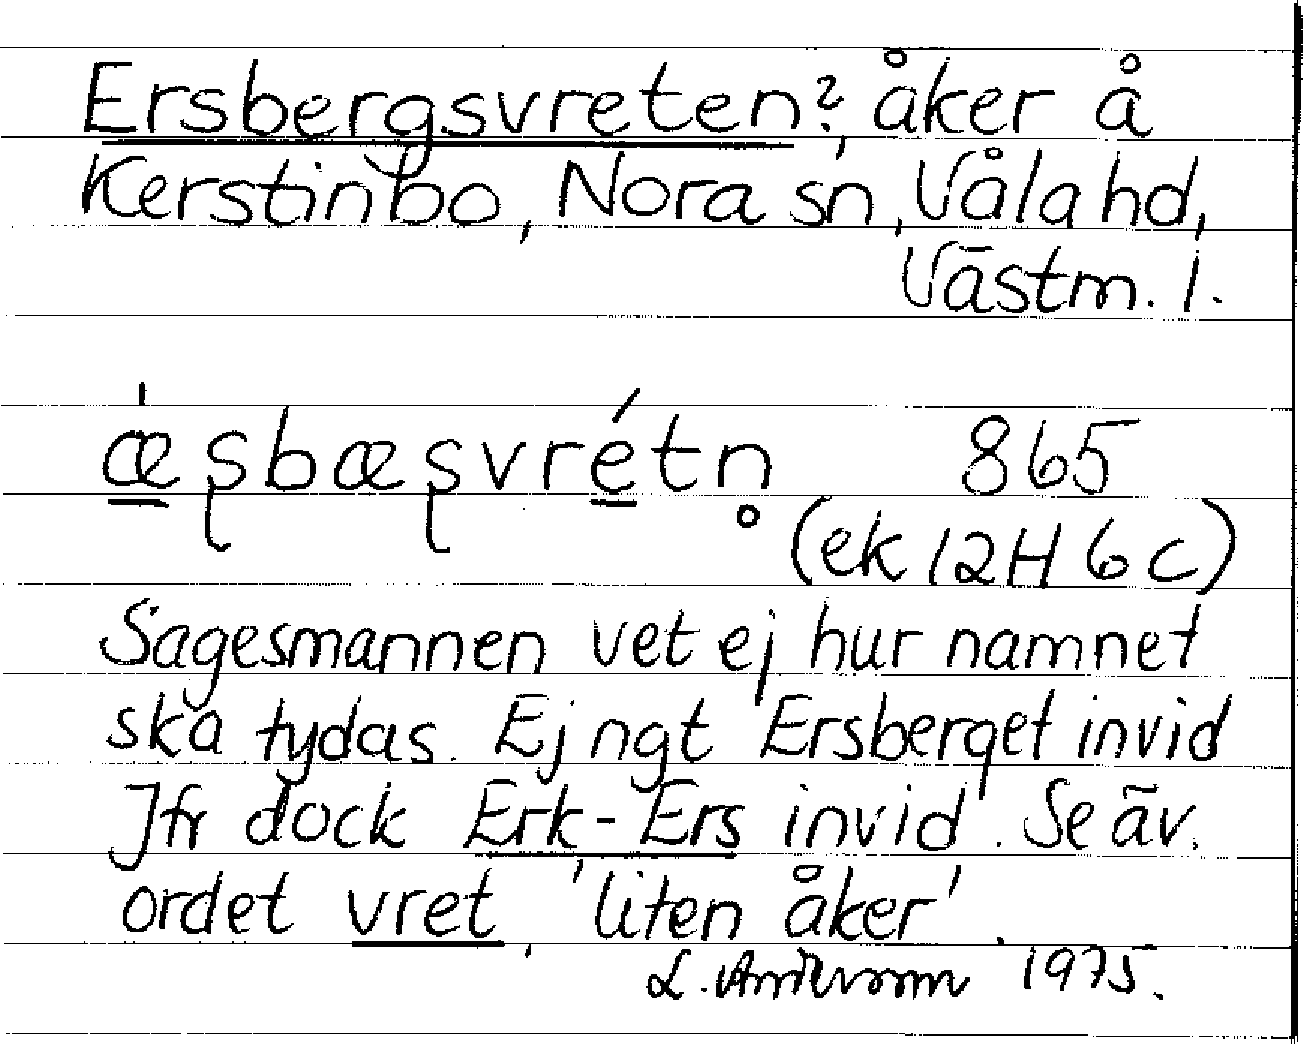 Ersbergsvreten?, åker å
Kerstinbo, Nora sn, Våla hd,
Västm. l.
ǽ̲ʂbæʂvré̲tn̥ 865
(ek 12H 6c)
Sagesmannen vet ej hur namnet
ska tydas. Ej ngt Ersberget invid
Jfr dock Erk-Ers invid. Se äv.
ordet vret, 'liten åker'.
L. Andersson 1975.